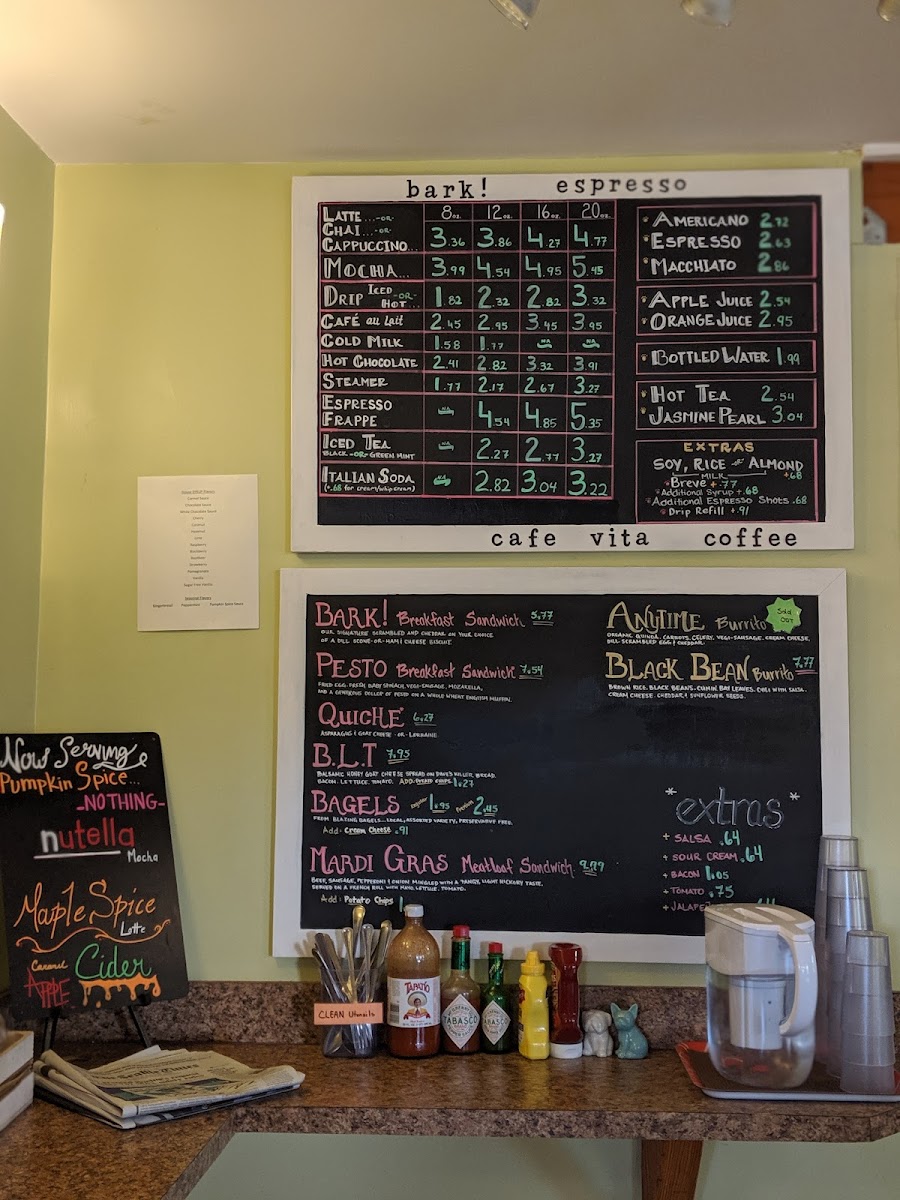 bark! espresso
8oz. 12oz. 16oz. 20oz.
LATTE...-OR-
CHAI...-OR-
CAPPUCCINO... 3.36 3.86 4.27 4.77
MOCHA... 3.99 4.54 4.95 5.45
DRIP ICED -OR- HOT... 1.82 2.32 2.82 3.32
CAFÉ au lait 2.45 2.95 3.45 3.95
COLD MILK 1.58 1.77 NA NA
HOT CHOCOLATE 2.41 2.82 3.32 3.91
STEAMER 1.77 2.17 2.67 3.27
ESPRESSO
FRAPPE NA 4.54 4.85 5.35
ICED TEA
BLACK -OR- GREEN MINT NA 2.27 2.77 3.27
ITALIAN SODA
(+.68 for cream/whip cream) NA 2.82 3.04 3.22
AMERICANO 2.72
ESPRESSO 2.63
MACCHIATO 2.86
APPLE JUICE 2.54
ORANGE JUICE 2.95
BOTTLED WATER 1.99
HOT TEA 2.54
JASMINE PEARL 3.04
EXTRAS
SOY, RICE or ALMOND
MILK +.68
Breve +.77
Additional Syrup +.68
Additional Espresso Shots .68
Drip Refill +.91
cafe vita coffee
BARK! Breakfast Sandwich 5.77
OUR SIGNATURE SCRAMBLED AND CHEDDAR ON YOUR CHOICE
OF A DILL SCONE-OR-HAM & CHEESE BISCUIT
PESTO Breakfast Sandwich 7.54
FRIED EGG, FRESH BABY SPINACH, VEGI-SAUSAGE, MOZARELLA,
AND A GENEROUS DOLLOP OF PESTO ON A WHOLE WHEAT ENGLISH MUFFIN.
QUICHE 6.27
ASPARAGUS & GOAT CHEESE -OR- LORRAINE
B.L.T 7.95
BALSAMIC HONEY GOAT CHEESE SPREAD ON DAVE'S KILLER BREAD.
BACON. LETTUCE. TOMATO. ADD: POTATO CHIPS 1.27
BAGELS Regular 1.95 Premium 2.45
FROM BLAZING BAGELS...LOCAL, ASSORTED VARIETY, PRESERVATIVE FREE.
Add: Cream Cheese .91
MARDI GRAS Meatloaf Sandwich
BEEF, SAUSAGE, PEPPERONI & ONION MINGLED WITH A TANGY, LIGHT HICKORY TASTE.
SERVED ON A FRENCH ROLL WITH MAYO, LETTUCE, TOMATO.
Add: Potato Chips
ANYTIME Burrito Sold OUT
ORGANIC QUINOA, CARROTS, CELERY, VEGI-SAUSAGE, CREAM CHEESE,
DILL SCRAMBLED EGG & CHEDDAR.
BLACK BEAN Burrito 7.77
BROWN RICE, BLACK BEANS, CUMIN, BAY LEAVES, CHILI WITH SALSA,
CREAM CHEESE, CHEDDAR & SUNFLOWER SEEDS.
*extras*
+ SALSA .64
+ SOUR CREAM .64
+ BACON 1.05
+ TOMATO .75
+ JALAPE
Now Serving
Pumpkin Spice...
-NOTHING-
nutella
Mocha
Maple Spice
Latte
Caramel
APPLE Cider
CLEAN Utensils
TAPATIO
TABASCO
TABASCO